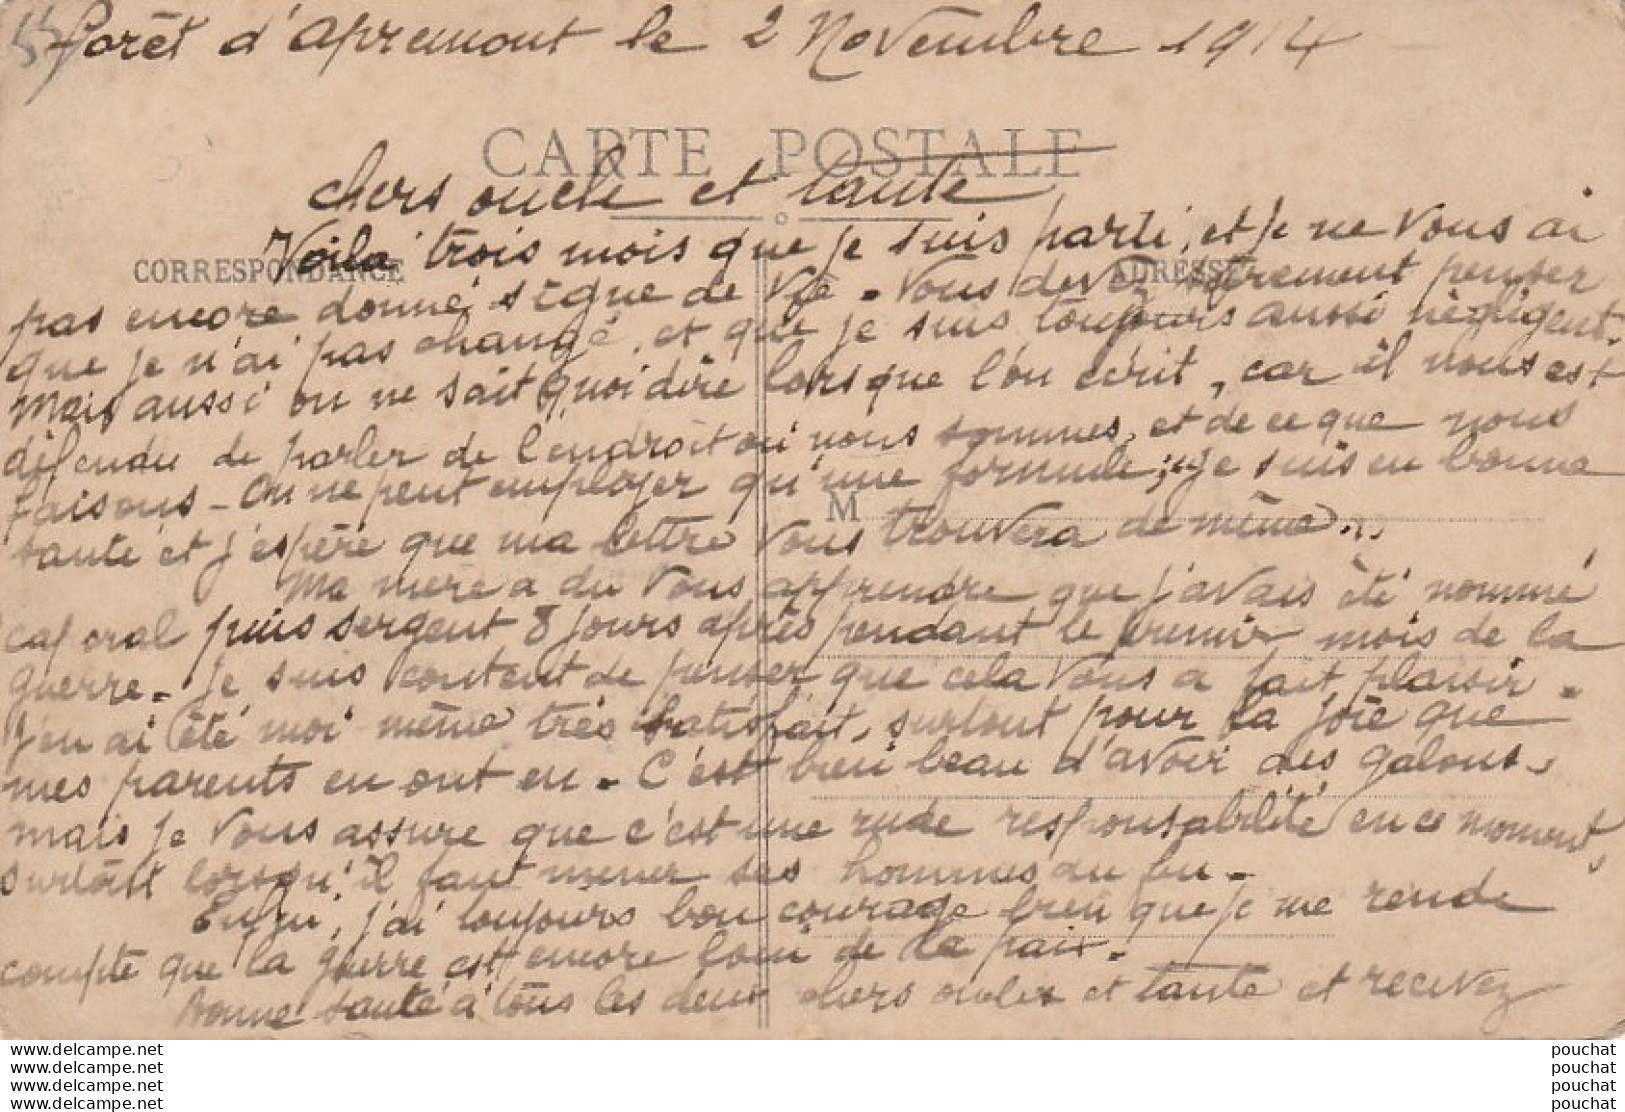 55
forêt d'apremont le 2 Novembre 1914
CARTE POSTALE
chers oncle et tante
CORRESPONDANCE
ADRESSE
Voila trois mois que je suis parti, et je ne vous ai
pas encore donné signe de vie. Vous devez sûrement penser
que je n'ai pas changé, et que je suis toujours aussi négligent.
Mais aussi on ne sait quoi dire lorsque l'on écrit, car il nous est
défendu de parler de l'endroit où nous sommes, et de ce que nous
faisons - On ne peut employer qu'une formule; je suis en bonne
M
santé et j'espère que ma lettre vous trouvera de même...
Ma mère a du vous apprendre que j'avais été nommé
caporal puis sergent 8 jours après pendant le premier mois de la
guerre. Je suis content de penser que cela vous a fait plaisir.
J'en ai été moi même très satisfait, surtout pour la joie que
mes parents en ont eu. C'est bien beau d'avoir des galons,
mais je vous assure que c'est une rude responsabilité en ce moment,
surtout lorsqu'il faut mener ses hommes au feu.
Enfin, j'ai toujours bon courage bien que je me rende
compte que la guerre est encore loin de la paix.
Bonne santé à tous les deux chers oncle et tante et recevez
www.delcampe.net
www.delcampe.net
www.delcampe.net
www.delcampe.net
pouchat
pouchat
pouchat
pouchat